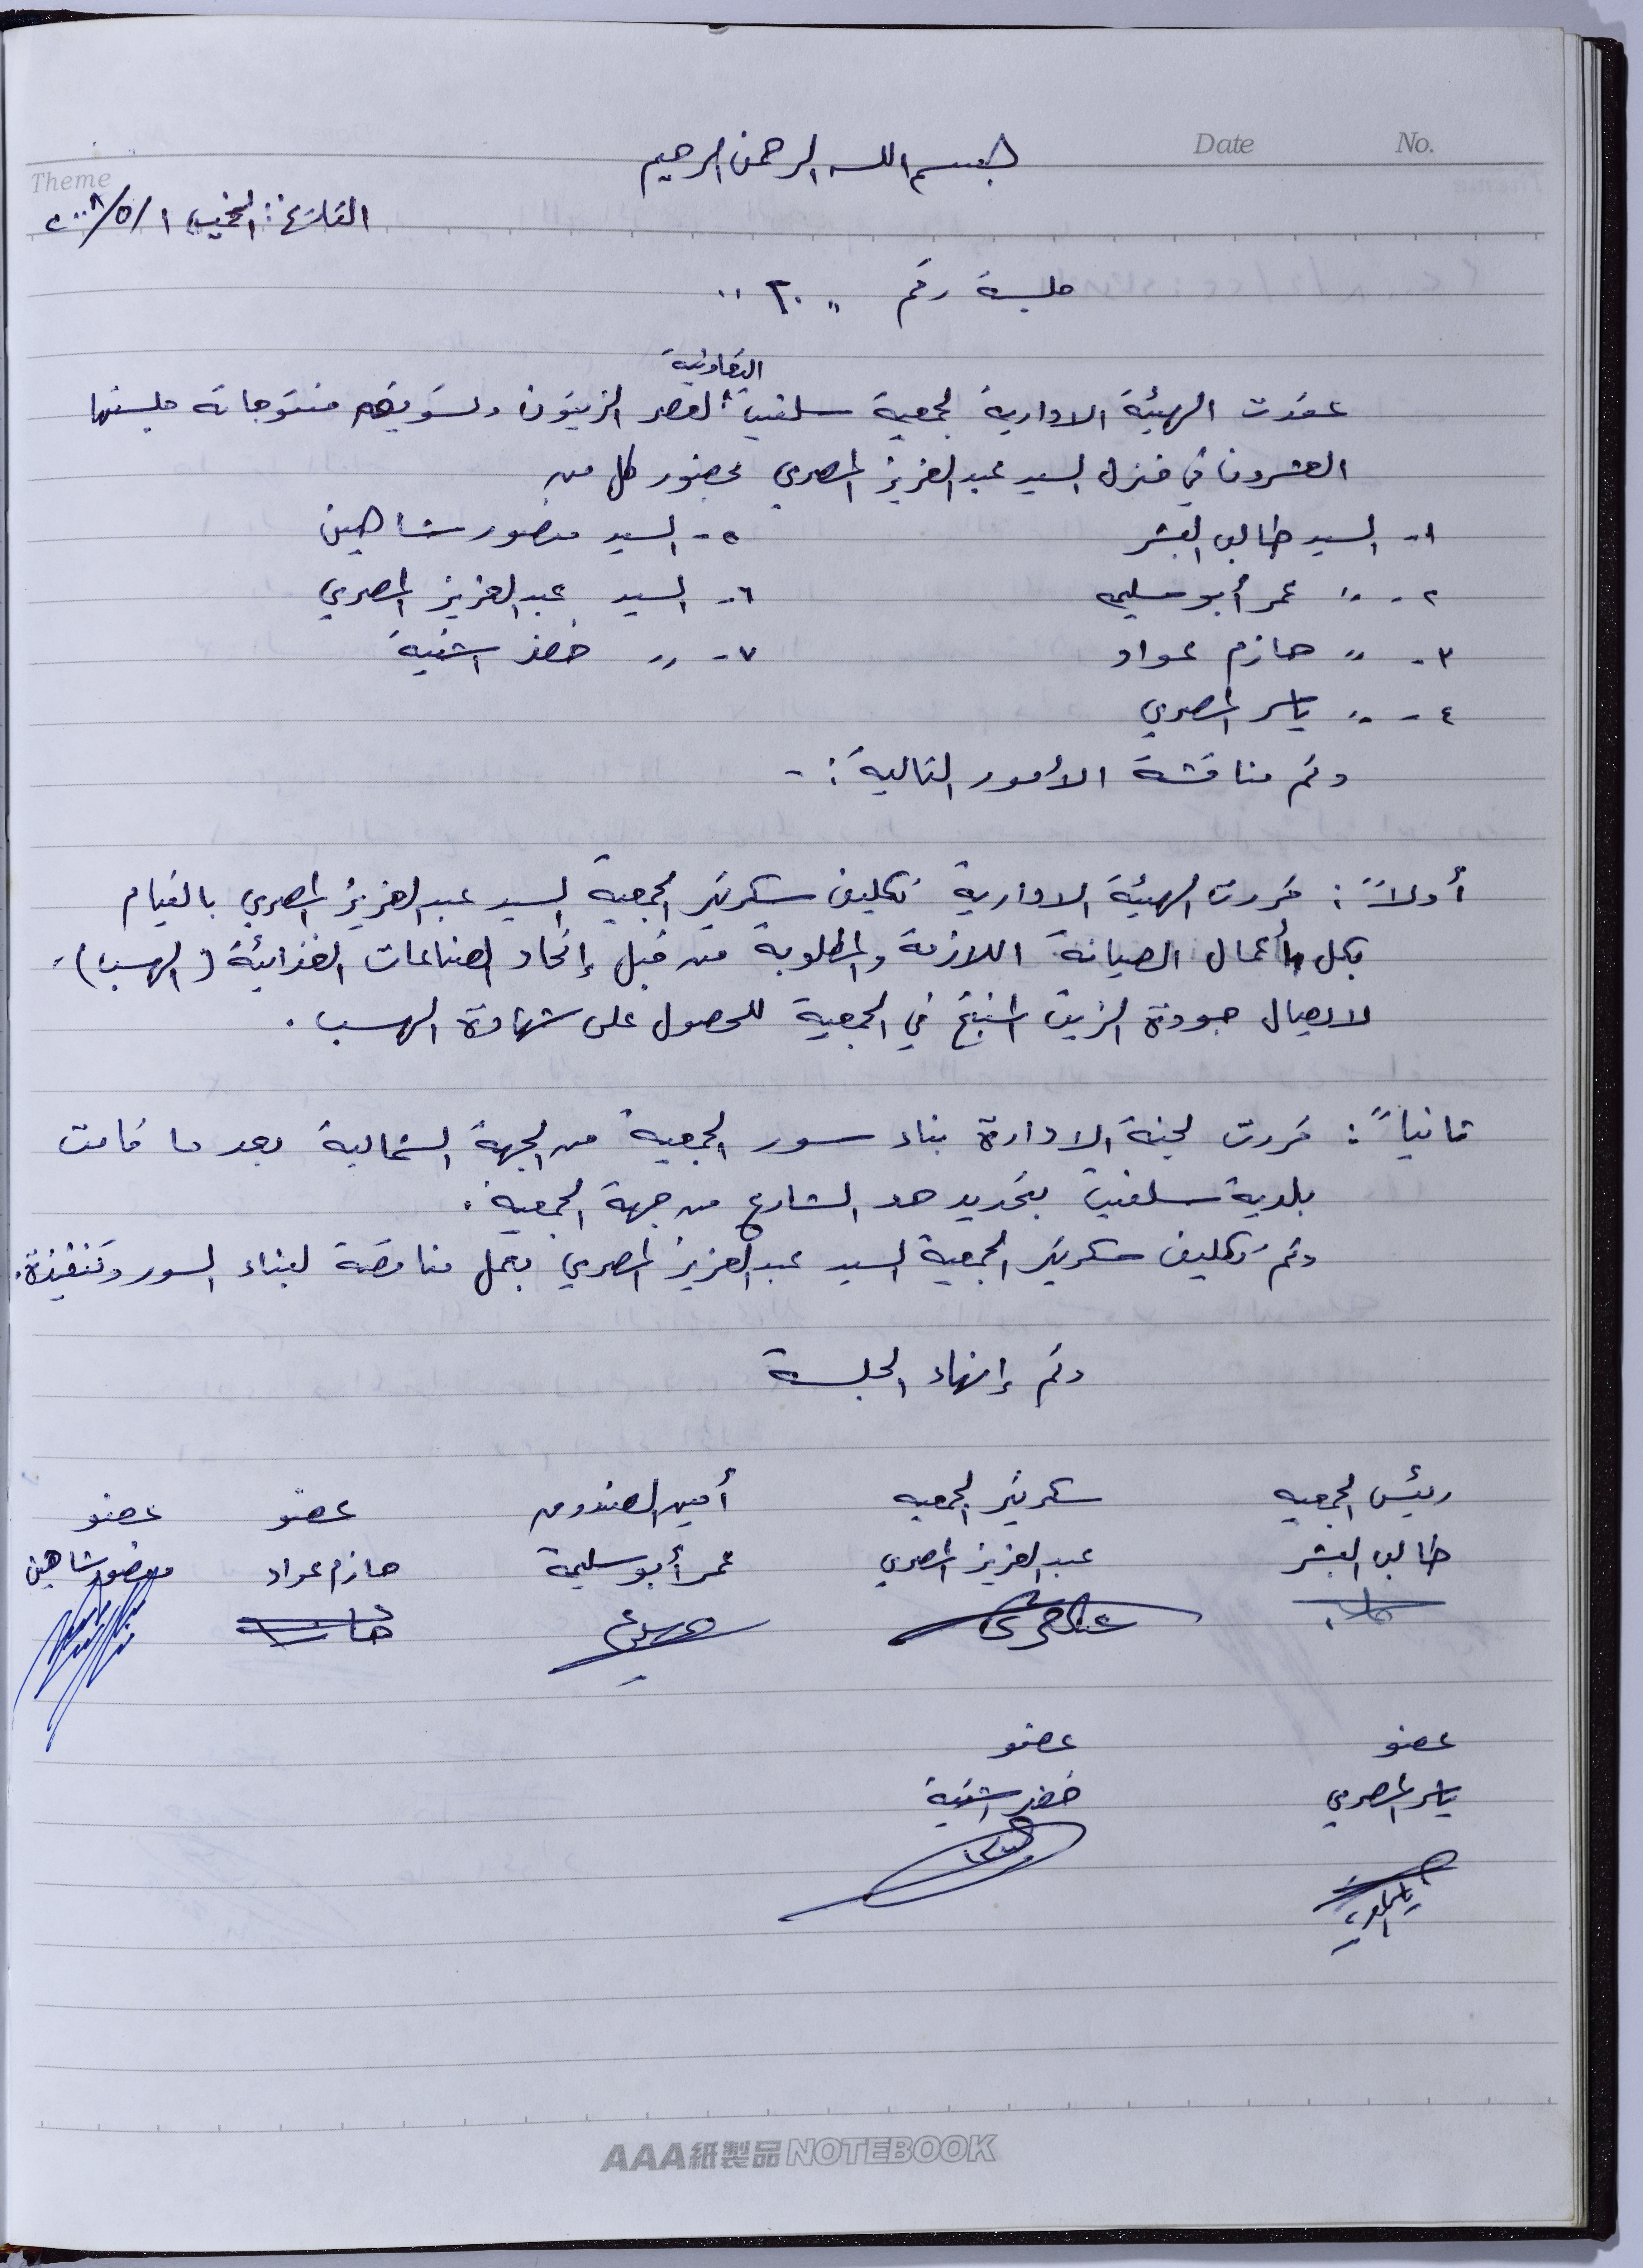 No.
Date
Theme
بسم الله الرحمن الرحيم
التاريخ: الخميس ١/٥/٢٠٠٨
جلسة رقم " ٢٠ "
التعاونية
عقدت الهيئة الادارية لجمعية سلفيت لعصر الزيتون وتسويق منتوجاته جلستها
العشرون في منزل السيد عبد العزيز المصري بحضور كل من
١- السيد طالب البشر
٥- السيد منصور شاهين
٢- " عمر أبو سليمه
٦- السيد عبد العزيز المصري
٣- " حازم عواد
٧- " خضر اشتية
٤- " ياسر المصري
وتم مناقشة الأمور التالية :-
أولاً : قررت الهيئة الادارية تكليف سكرتير الجمعية السيد عبد العزيز المصري بالقيام
بكل أعمال الصيانة اللازمة والمطلوبة من قبل إتحاد الصناعات الغذائية (الهسب).
لايصال جودة الزيت المنتج في الجمعية للحصول على شهادة الهسب .
ثانياً : قررت لجنة الادارة بناء سور الجمعية من الجهة الشمالية بعد ما قامت
بلدية سلفيت بتحديد حد الشارع من جهة الجمعية .
وتم تكليف سكرتير الجمعية السيد عبد العزيز المصري بعمل مناقصة لبناء السور وتنفيذة.
وتم إنهاء الجلسة
رئيس الجمعيه
سكرتير الجمعيه
أمين الصندوق
عضو
عضو
طالب البشر
عبد العزيز المصري
عمر أبو سليمة
حازم عواد
منصور شاهين
عضو
عضو
ياسر المصري
خضر اشتية
AAA紙製品NOTEBOOK